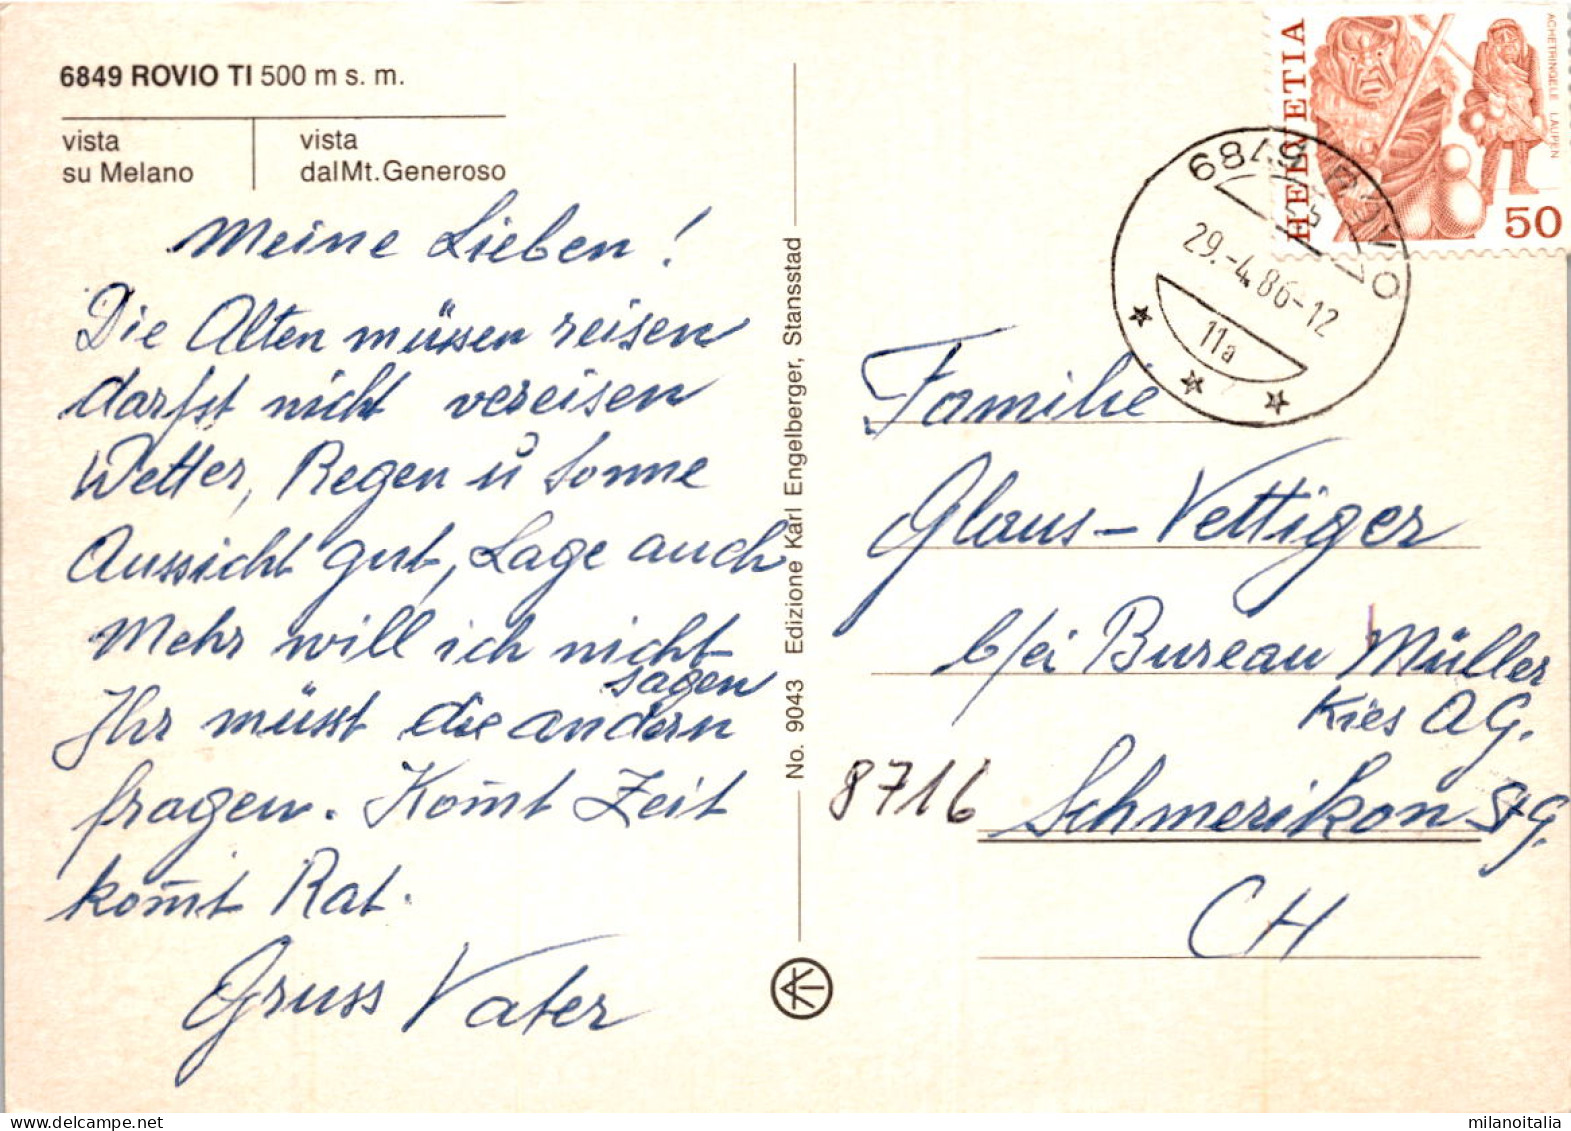 6849 ROVIO TI 500 m s. m.
vista
su Melano
vista
dal Mt. Generoso
Meine Lieben!
Die Alten müssen reisen
darfst nicht vereisen
Wetter, Regen u Sonne
Aussicht gut, Lage auch
Mehr will ich nicht
sagen
Ihr müsst die andern
fragen. Kom̄t Zeit
kom̄t Rat.
Gruss Vater
No. 9043 Edizione Karl Engelberger, Stansstad
HELVETIA
ACHETRINGELE LAUPEN
50
6849 ROVIO
29.-4.86-12
11a
Familie
Glaus-Vettiger
b/ei Bureau Müller
Kies AG.
8716 Schmerikon StG.
CH
milanoitalia